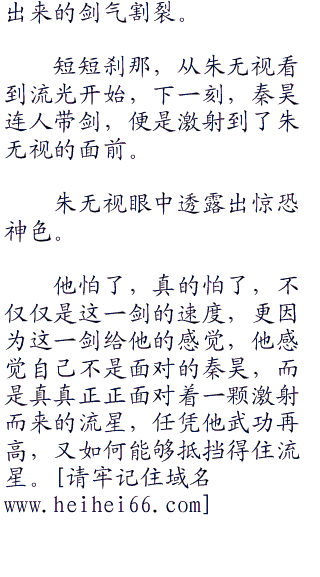 出来的剑气割裂。
短短刹那，从朱无视看
到流光开始，下一刻，秦昊
连人带剑，便是激射到了朱
无视的面前。
朱无视眼中透露出惊恐
神色。
他怕了，真的怕了，不
仅仅是这一剑的速度，更因
为这一剑给他的感觉，他感
觉自己不是面对的秦昊，而
是真真正正面对着一颗激射
而来的流星，任凭他武功再
高，又如何能够抵挡得住流
星。[请牢记住域名
www.heihei66.com]